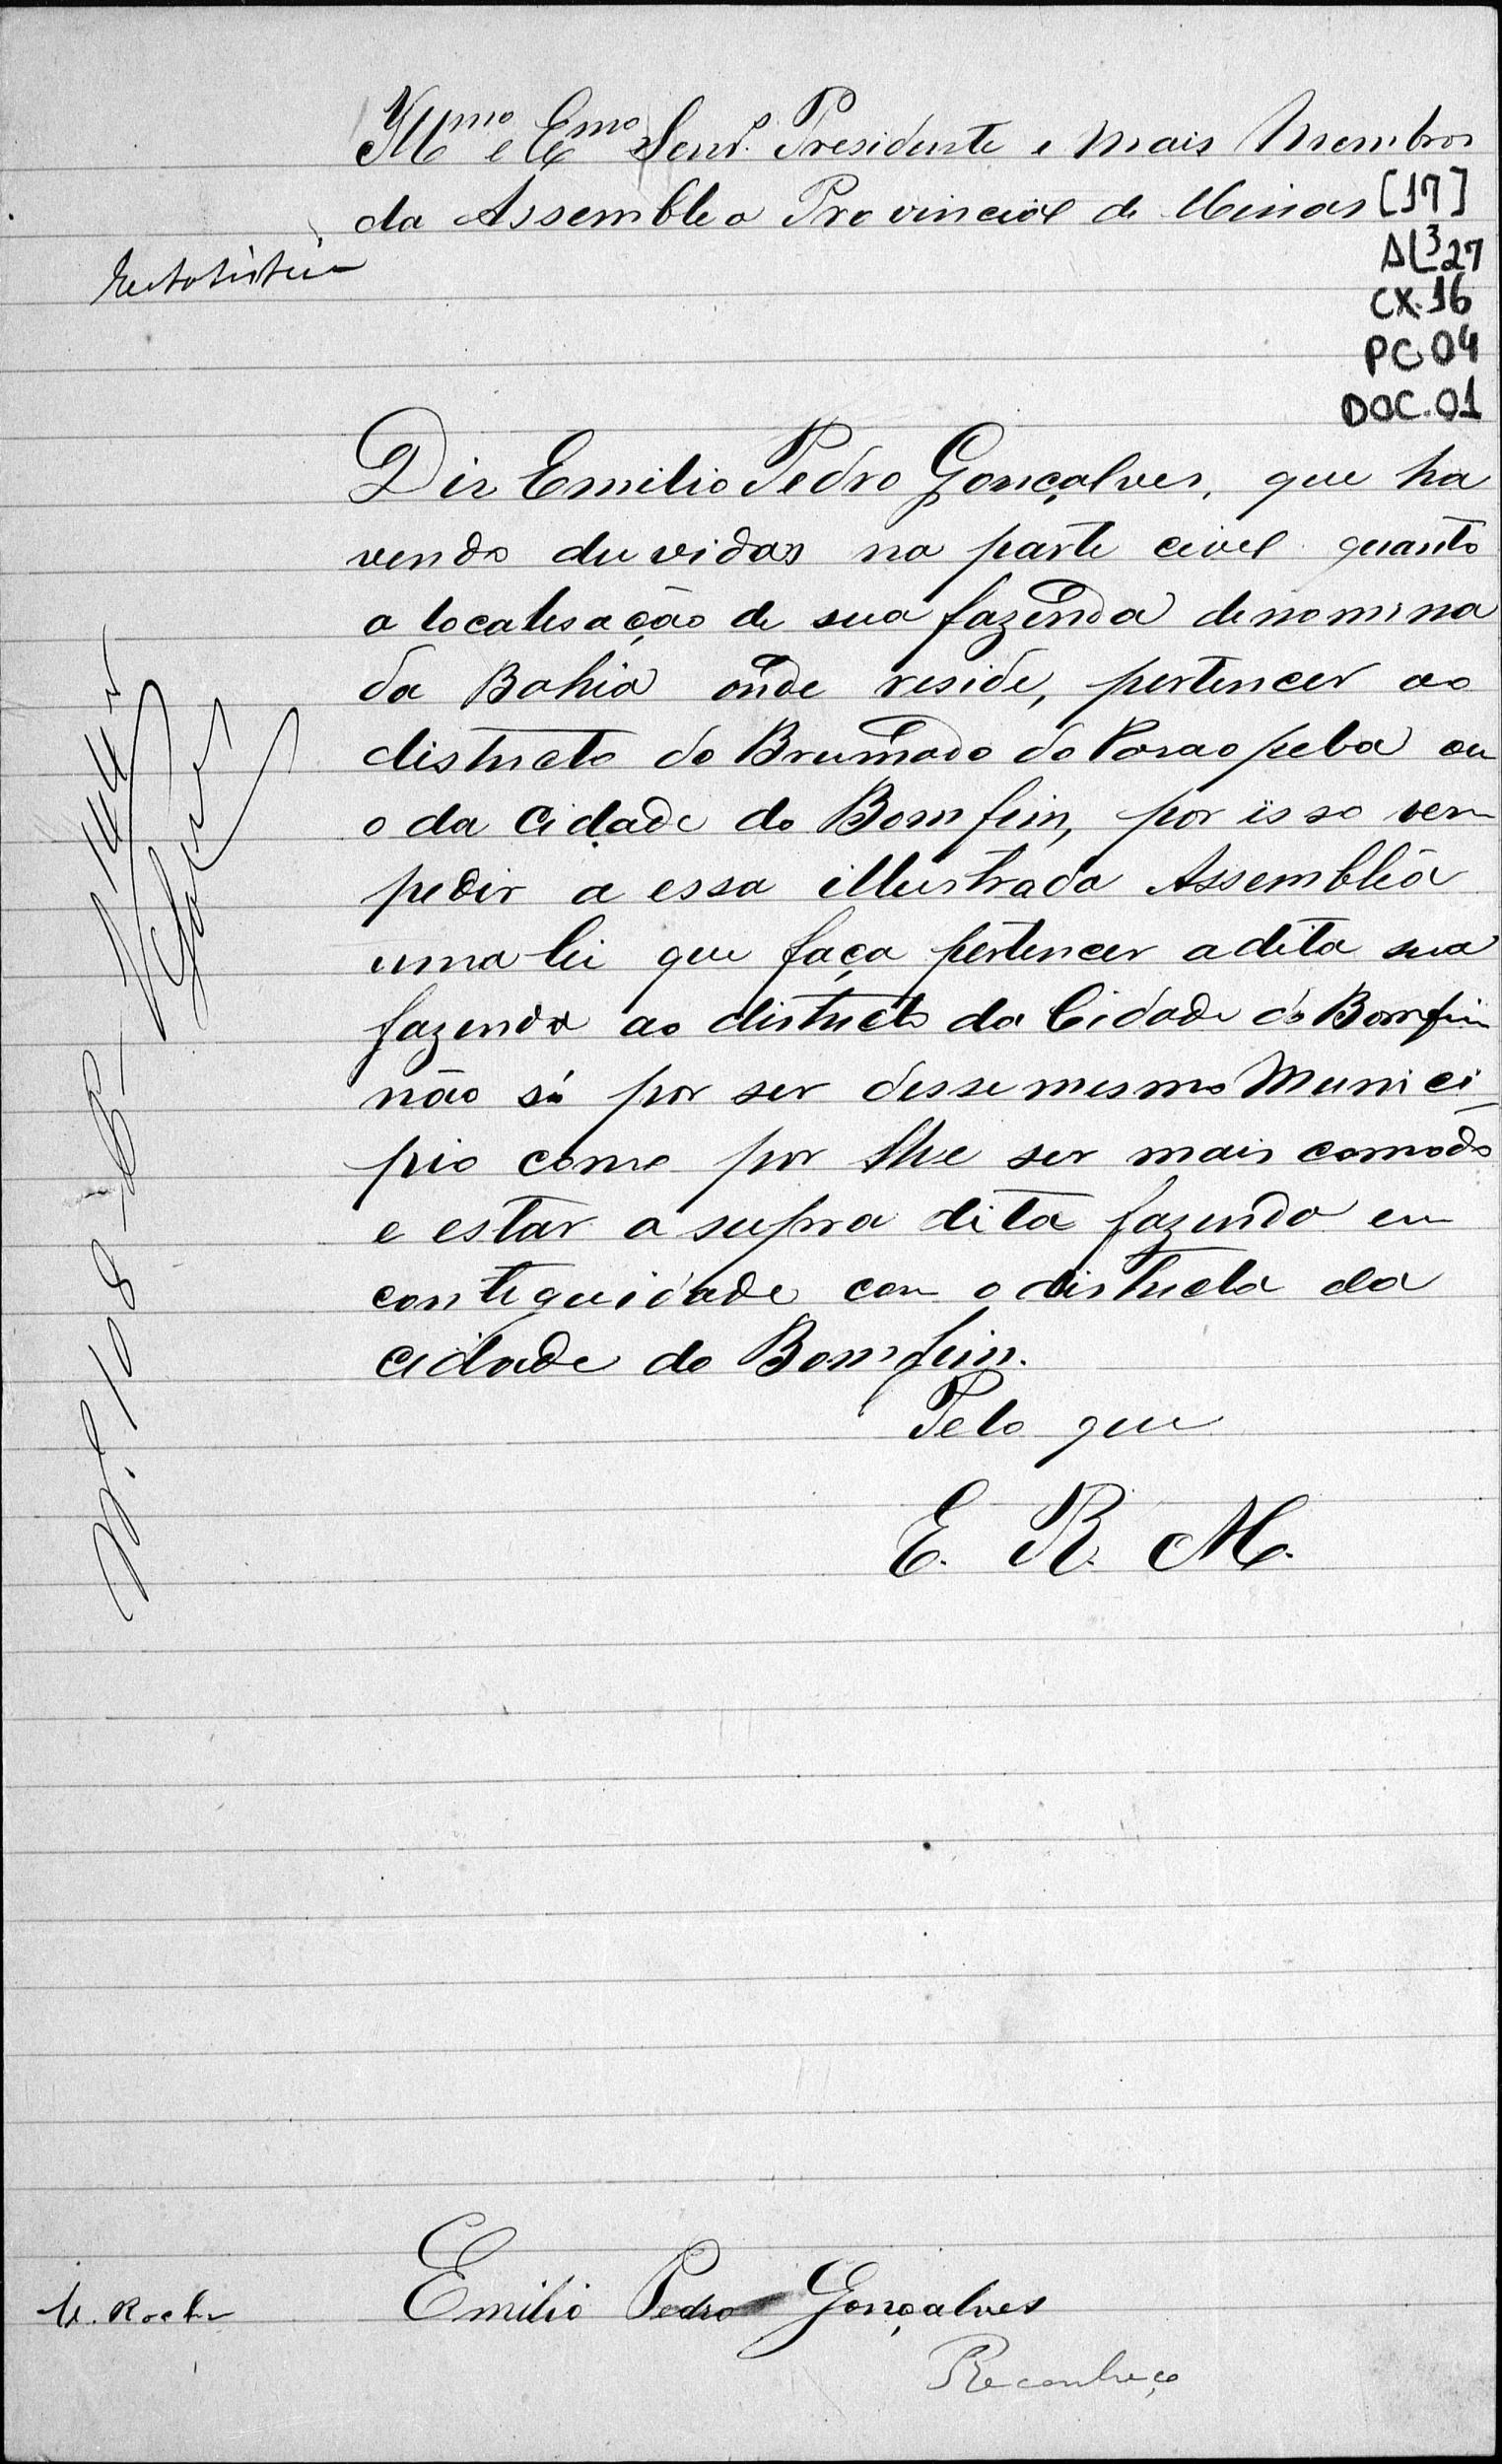 Illmo e Exmo Senrs Presidente e mais Membros
da Assemblea Provincial de Minas [17]
AL³27
CX.16
PC.04
DOC.01
Estatistica
Diz Emilio Pedro Gonçalves, que ha
vendo duvidas na parte civel quanto
a localisação de sua fazenda denomina
da Bahia onde reside, pertencer ao
districto do Brumado do Paraopeba ou
o da Cidade do Bomfim, por isso vem
pedir a essa illustrada Assemblea
uma lei que faça pertencer a dita sua
fazenda ao districto da Cidade do Bomfim
não só por ser desse mesmo Munici
pio como por lhe ser mais comodo
e estar a supra dita fazenda em
contiguidade com o districto da
cidade do Bomfim.
Pelo que
E. R. M.
Nº 108
Emilio Pedro Gonçalves
Reconheço